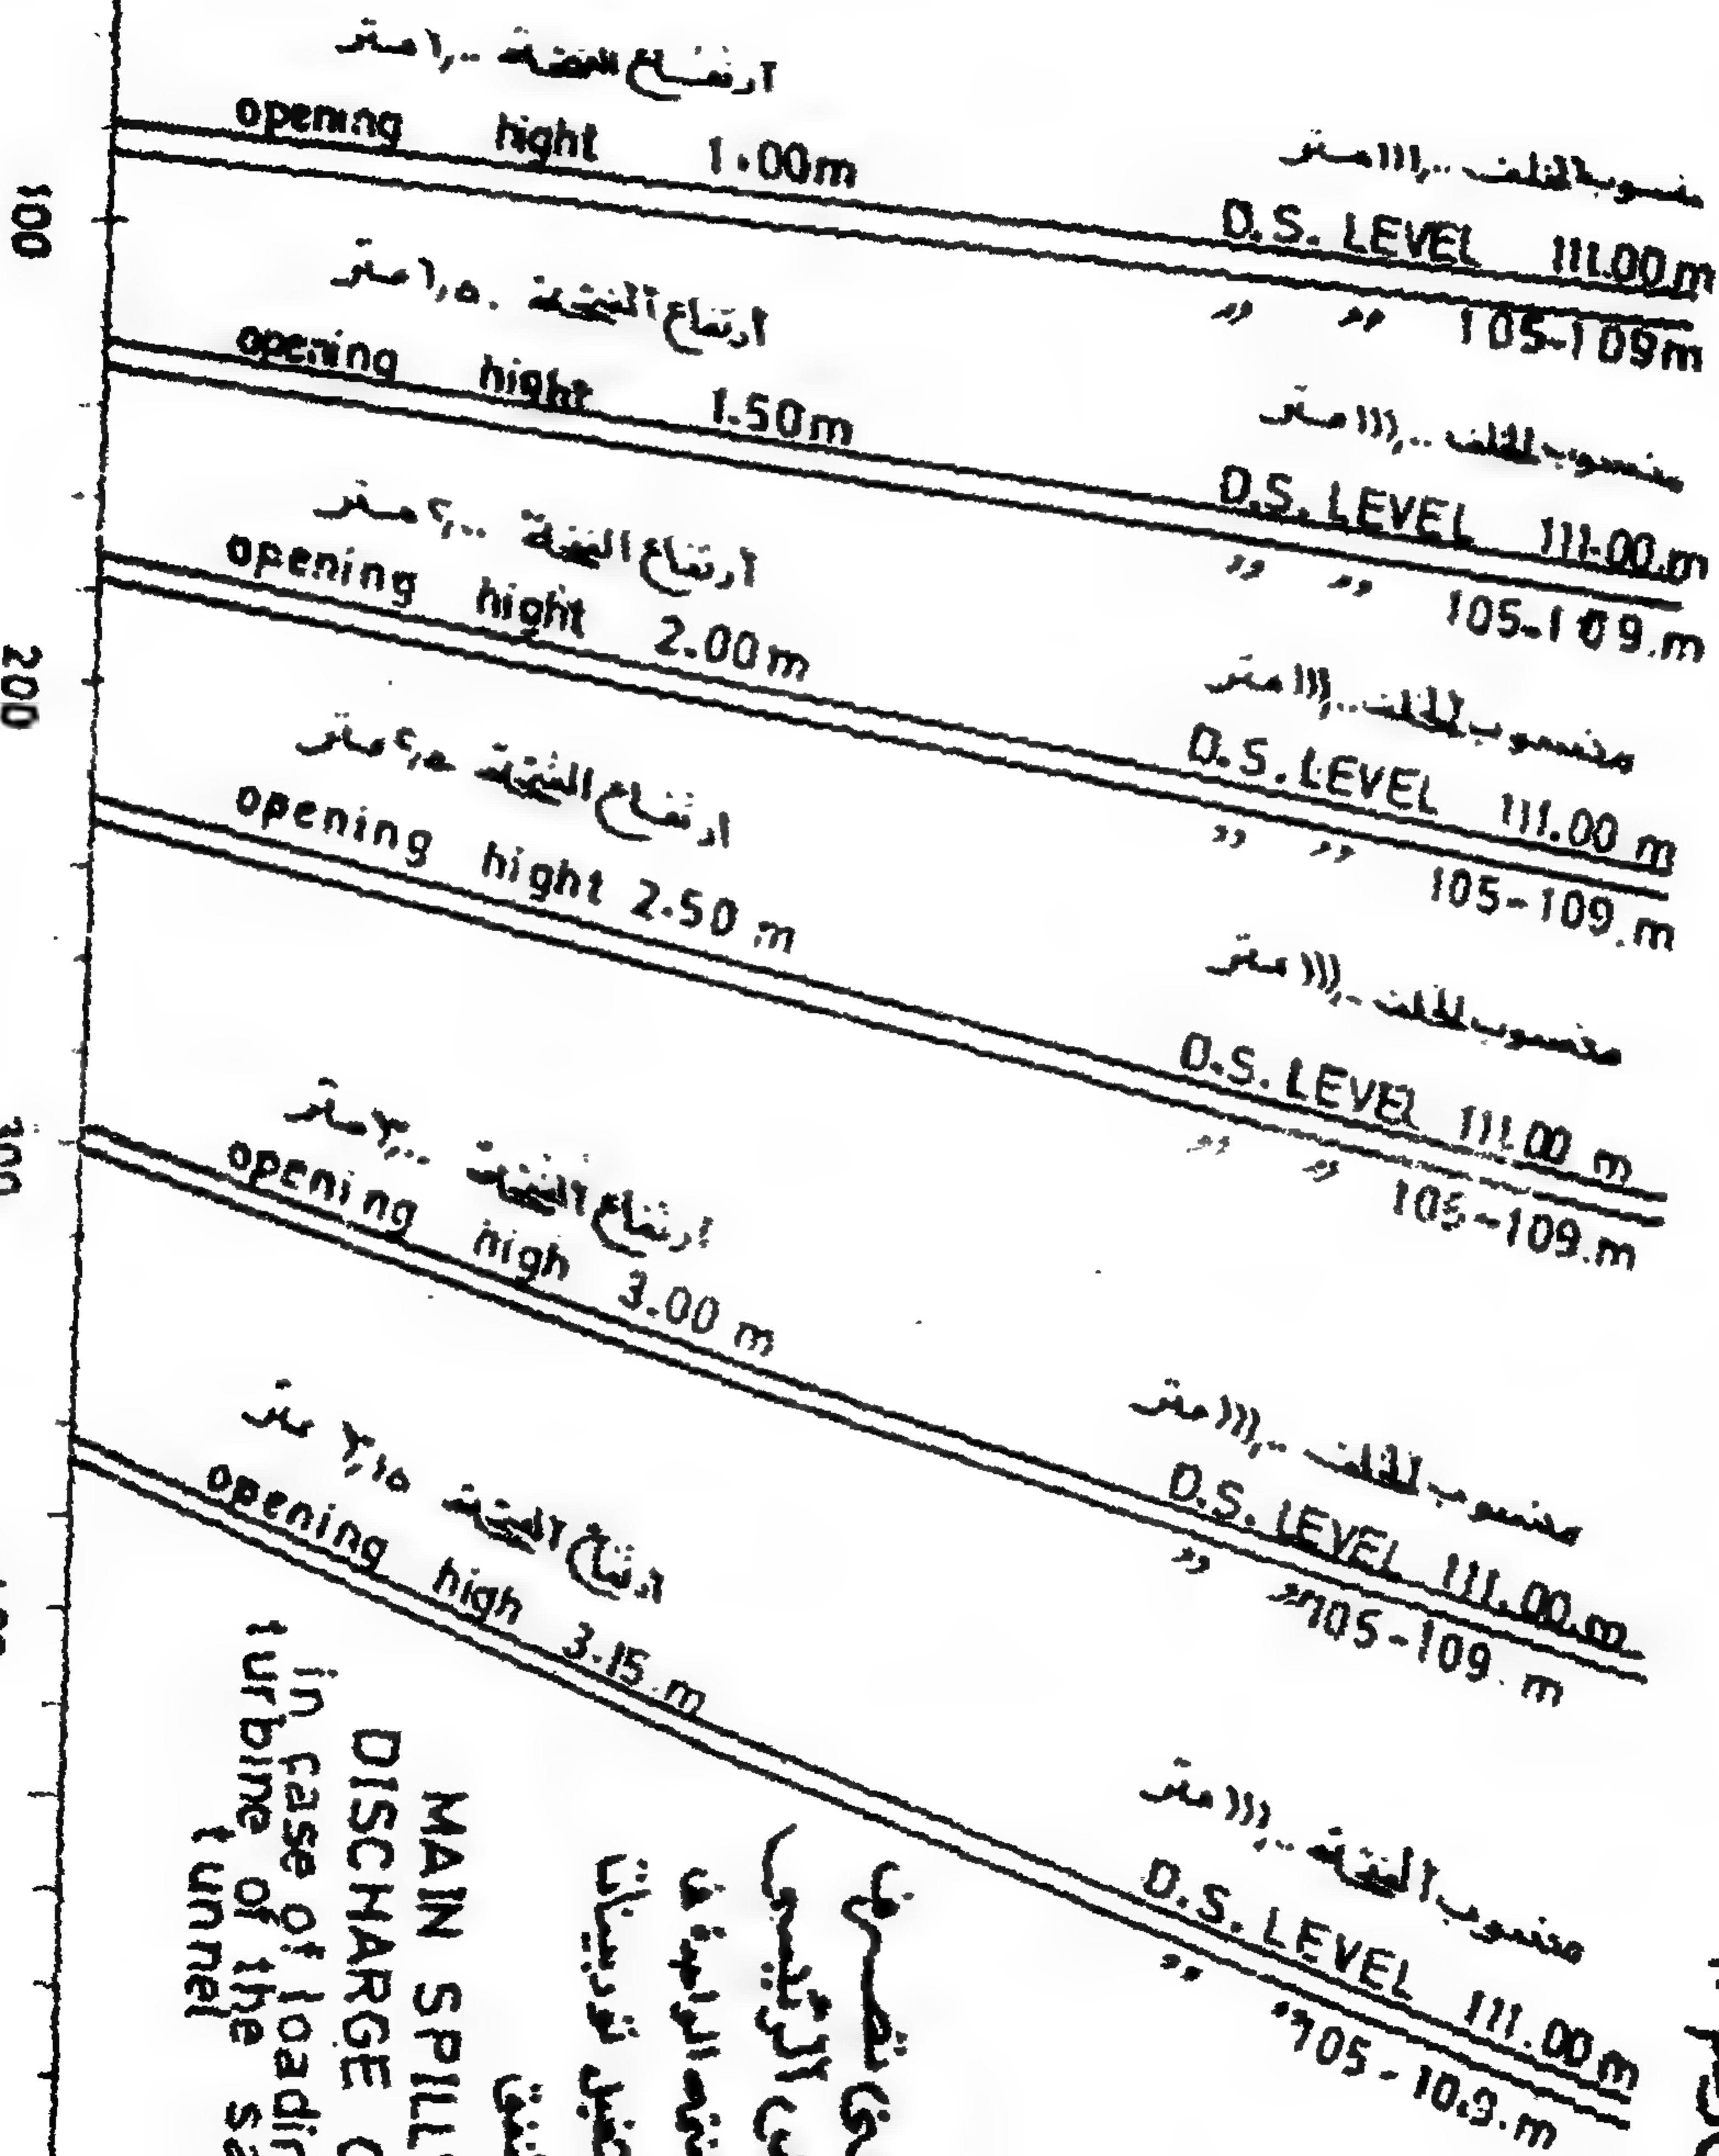 أرتفاع الفتحة ١,٠٠ متر
opening hight 1.00m
منسوب المخلف ١١١,٠٠ متر
D.S. LEVEL 111.00m
,, ,, 105-109m
100
أرتفاع الفتحة ١,٥٠ متر
opening hight 1.50m
منسوب المخلف ١١١,٠٠ متر
D.S. LEVEL 111.00.m
,, ,, 105-109.m
أرتفاع الفتحة ٢,٠٠ متر
opening hight 2.00m
منسوب المخلف ١١١,٠٠ متر
D.S. LEVEL 111.00 m
,, ,, 105-109.m
200
ارتفاع الفتحة ٢,٥٠ متر
opening hight 2.50 m
منسوب المخلف ١١١,٠٠ متر
D.S. LEVEL 111.00 m
,, ,, 105-109.m
ارتفاع الفتحة ٣,٠٠ متر
opening high 3.00 m
منسوب المخلف ١١١,٠٠ متر
D.S. LEVEL 111.00.m
,, ,, 105-109.m
أرتفاع الفتحة ٣,١٥ متر
opening high 3.15.m
منسوب ١١١,٠٠ متر
D.S. LEVEL 111.00m
,, ,, 105-109.m
MAIN SPILL
DISCHARGE
in case of loadin
turbine of the sa
tunnel